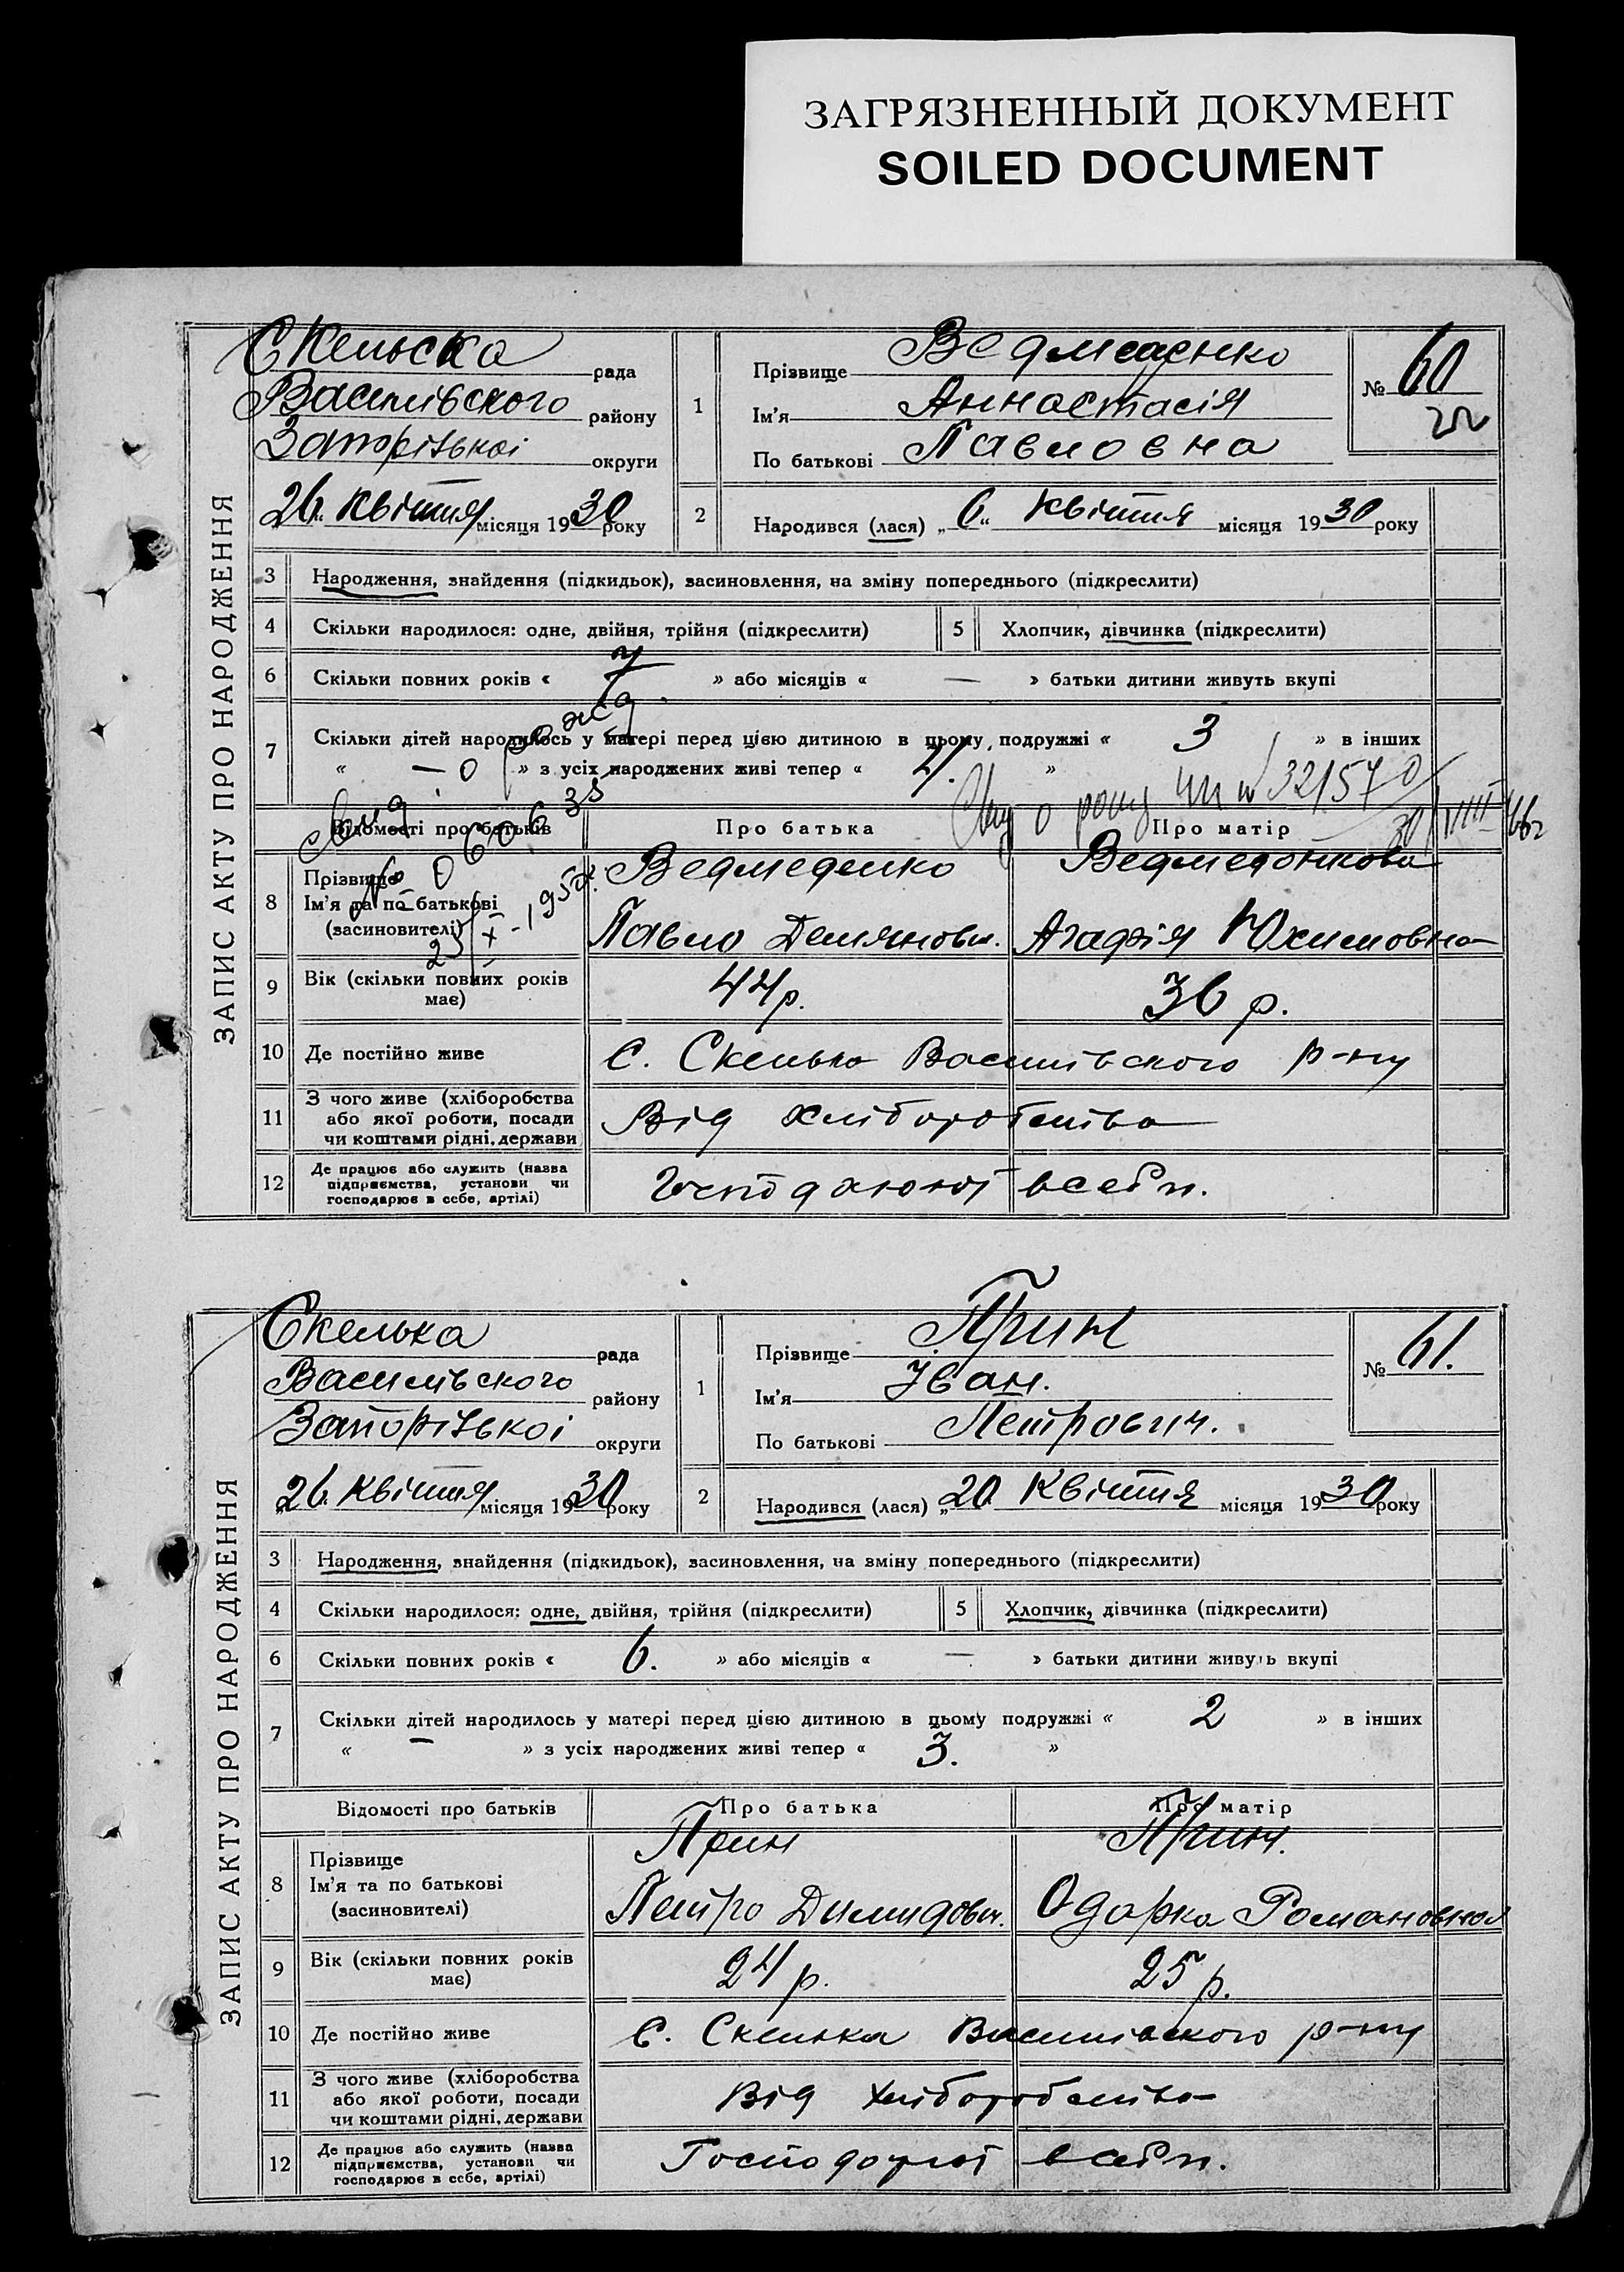 ЗАГРЯЗНЕННЫЙ ДОКУМЕНТ
SOILED DOCUMENT
ЗАПИС АКТУ ПРО НАРОДЖЕННЯ
Скельска рада
Василівского району
Запорізької округи
26 Квітня місяця 1930 року
1
Прізвище
Ім'я Аннастасія
По батькові Павловна
№ 60
2
Народився (лася) „6“ Квітня місяця 1930 року
3 Народження, знайдення (підкидьок), засиновлення, на зміну попереднього (підкреслити)
4 Скільки народилося: одне, двійня, трійня (підкреслити) 5 Хлопчик, дівчинка (підкреслити)
6 Скільки повних років « » або місяців « — » батьки дитини живуть вкупі
7 Скільки дітей народилось у матері перед цією дитиною в цьому подружжі « 3 » в інших
« — » з усіх народжених живі тепер « 4. »
Свид. о рожд.
№ 060635
23/X-195
32/570
Відомості про батьків Про батька Про матір
8 Прізвище
Ім'я та по батькові
(засиновителі)
Ведмеденко
Павло Демянович.
Ведмеденкова
Агафія Юхимовна
9 Вік (скільки повних років має) 44 р. 36 р.
10 Де постійно живе С. Скелька Василівского р-ну
11 З чого живе (хліборобства
або якої роботи, посади
чи коштами рідні, держави
Від хліборобства
12 Де працює або служить (назва
підприємства, установи чи
господарює в себе, артілі)
всебе.
ЗАПИС АКТУ ПРО НАРОДЖЕННЯ
Скелька рада
Василівского району
Запорізької округи
26 Квітня місяця 1930 року
1
Прізвище Прин
Ім'я Іван.
По батькові Петрович.
№ 61.
2
Народився (лася) „20 Квітня місяця 1930 року
3 Народження, знайдення (підкидьок), засиновлення, на зміну попереднього (підкреслити)
4 Скільки народилося: одне, двійня, трійня (підкреслити) 5 Хлопчик, дівчинка (підкреслити)
6 Скільки повних років « 6. » або місяців « — » батьки дитини живуть вкупі
7 Скільки дітей народилось у матері перед цією дитиною в цьому подружжі « 2 » в інших
« — » з усіх народжених живі тепер « 3. »
Відомості про батьків Про батька Про матір
8 Прізвище
Ім'я та по батькові
(засиновителі)
Прин
Петро Димидович.
Прин.
Одарка Романовна
9 Вік (скільки повних років має) 24 р. 25 р.
10 Де постійно живе С. Скелька Василівского р-ну
11 З чого живе (хліборобства
або якої роботи, посади
чи коштами рідні, держави
Від хліборобства
12 Де працює або служить (назва
підприємства, установи чи
господарює в себе, артілі)
всебе.